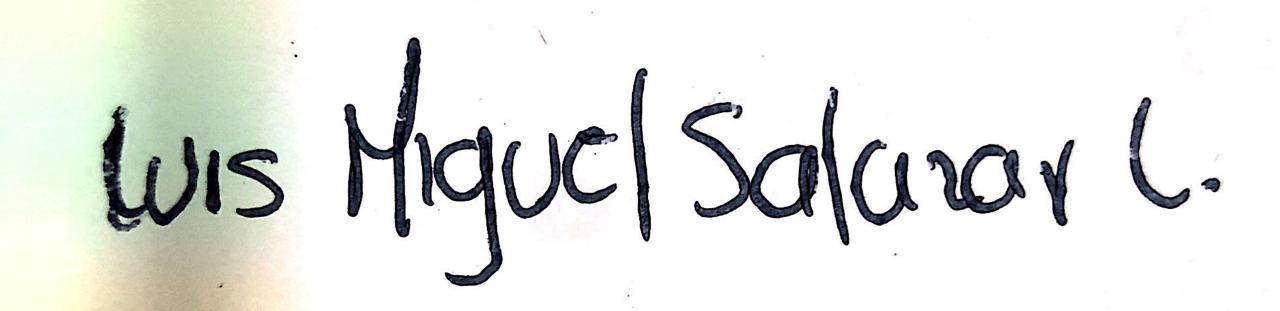 Luis Miguel Salazar L.